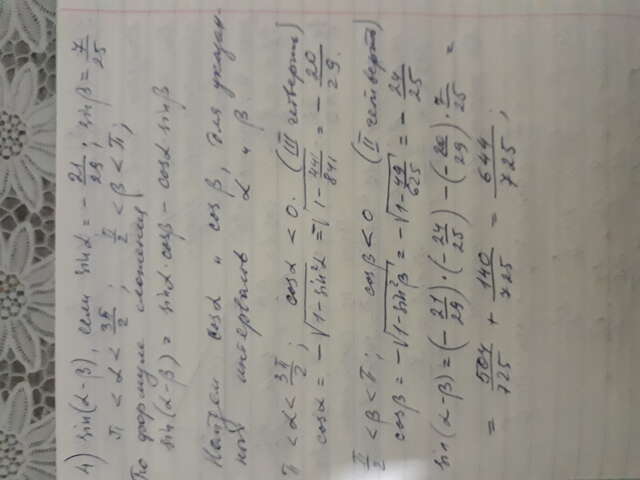 4) sin(α-β), если sinα = - 21/29; sinβ = 7/25
π < α < 3π/2; π/2 < β < π;
По формуле сложения
sin(α-β) = sinα·cosβ - cosα·sinβ
Найдем cosα и cosβ, для указан-
ных интервалов α и β.
π < α < 3π/2; cosα < 0. (III четверть)
cosα = -√(1-sin²α) = -√(1 - 441/841) = - 20/29.
π/2 < β < π; cosβ < 0 (II четверть)
cosβ = -√(1-sin²β) = -√(1 - 49/625) = - 24/25
sin(α-β) = (- 21/29)·(- 24/25) - (- 20/29)·7/25 =
= 504/725 + 140/725 = 644/725;